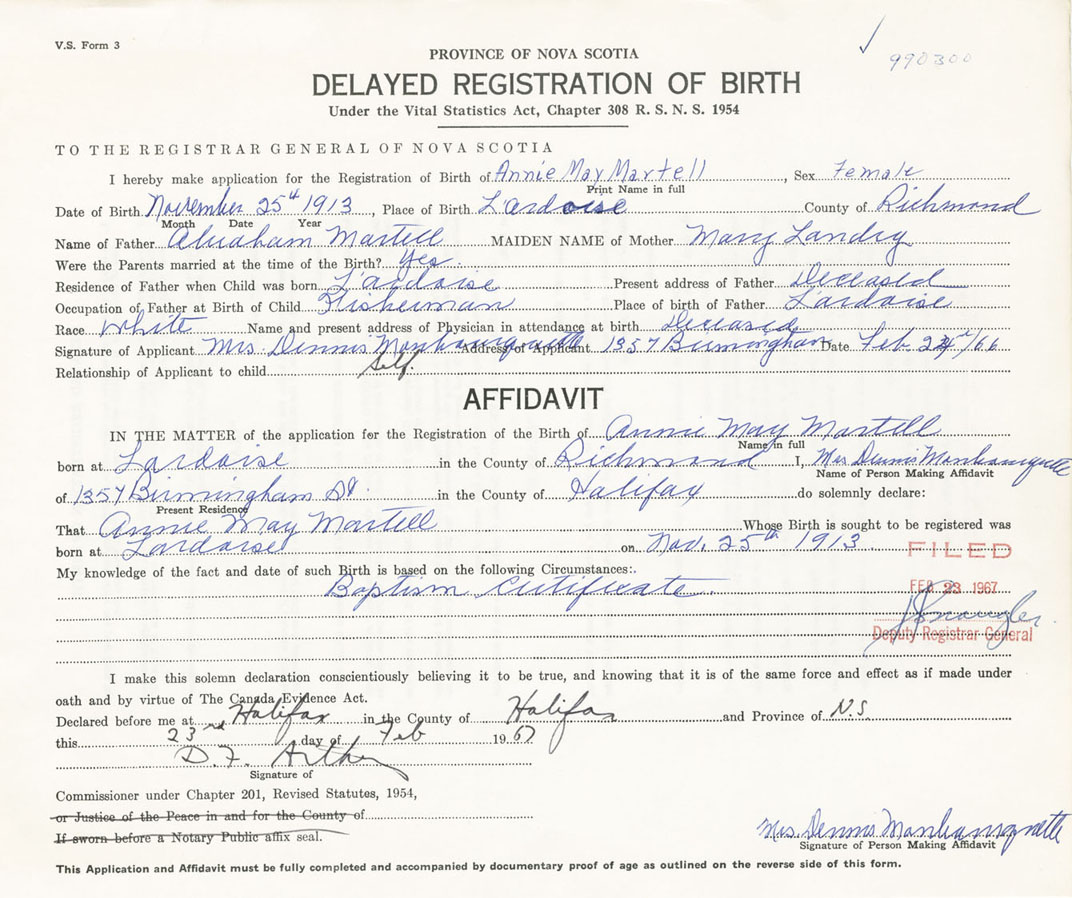 V.S. Form 3
990300
PROVINCE OF NOVA SCOTIA
DELAYED REGISTRATION OF BIRTH
Under the Vital Statistics Act, Chapter 308 R. S. N. S. 1954
TO THE REGISTRAR GENERAL OF NOVA SCOTIA
I hereby make application for the Registration of Birth of Annie May Martell, Sex Female
Print Name in full
Date of Birth November 25th 1913, Place of Birth L'ardoise County of Richmond
Month Date Year
Name of Father Abraham Martell MAIDEN NAME of Mother Mary Landry
Were the Parents married at the time of the Birth? Yes.
Residence of Father when Child was born L'ardoise Present address of Father Deceased
Occupation of Father at Birth of Child Fisherman Place of birth of Father L'ardoise
Race White Name and present address of Physician in attendance at birth Deceased
Signature of Applicant Mrs. Dennis Address of Applicant 1357 Birmingham Date Feb /66
Relationship of Applicant to child Self.
AFFIDAVIT
IN THE MATTER of the application for the Registration of the Birth of Annie May Martell
Name in full
born at Lardoise in the County of Richmond I, Mrs Dennis
Name of Person Making Affidavit
of 1357 Birmingham St. in the County of Halifax do solemnly declare:
Present Residence
That Annie May Martell Whose Birth is sought to be registered was
born at Lardoise on Nov. 25th 1913.
FILED
My knowledge of the fact and date of such Birth is based on the following Circumstances:.
Baptism Certificate.
FEB 23 1967
Deputy Registrar General
I make this solemn declaration conscientiously believing it to be true, and knowing that it is of the same force and effect as if made under
oath and by virtue of The Canada Evidence Act.
Declared before me at Halifax in the County of Halifax and Province of N.S.
this 23rd day of Feb 1967
D. F.
Signature of
Commissioner under Chapter 201, Revised Statutes, 1954,
or Justice of the Peace in and for the County of
If sworn before a Notary Public affix seal.
Mrs. Dennis
Signature of Person Making Affidavit
This Application and Affidavit must be fully completed and accompanied by documentary proof of age as outlined on the reverse side of this form.